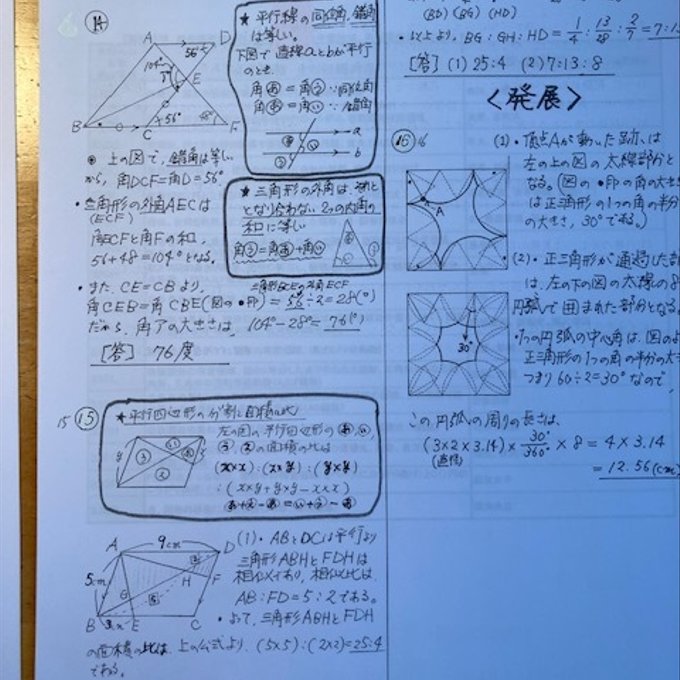 ⑭
A D
56°
104°
ア
E
B C
56°
48°
F
★ 平行線の同位角、錯角
は等しい。
下図で直線aとbが平行
のとき、
角あ = 角う ∵同位角
角あ = 角い ∵錯角
a
b
★ 三角形の外角は、
となり合わない2つの内角の
和に等しい
角う=角あ+角い
上の図で、錯角は等しい
から、角DCF=角D=56°
・三角形の外角AECは
(ECF)
角ECFと角Fの和、
56+48=104°となる。
・また、CE=CBより、
三角形BCEの外角ECF
角CEB=角CBE(図の・印)=56÷2=28(°)
だから、角アの大きさは、104°-28°=76(°)
[答] 76度
15 ⑮
★平行四辺形の分割と面積の比
左の図の平行四辺形のあ,い,
う,えの面積の比は
(x×x):(x×y):(y×y)
:(x×y+y×y-x×x)
A 9cm D
5cm
H F
G
B 3x E C
(1)・ABとDCは平行より
三角形ABHとFDHは
相似であり、相似比は
AB:FD=5:2である。
・よって、三角形ABHとFDH
の面積の比は、上の公式より、(5×5):(2×2)=25:4
である。
(BD) (BG) (HD)
・以上より、BG:GH:HD=1/4:13/28:2/7=7:13
[答] (1) 25:4 (2) 7:13:8
<発展>
⑯ 16
A
(1)・頂点Aが動いた跡は
左の上の図の太線部分と
なる。(図の・印の角の大き
は正三角形の1つの角の半分
の大きさ、30°である。)
(2)・正三角形が通過した部
は、左の下の図の太線の8
円弧で囲まれた部分となる。
30°
・1つの円弧の中心角は、図のよ
正三角形の1つの角の半分の大き
つまり60÷2=30°なので、
この円弧の周りの長さは、
(3×2×3.14)×30°/360°×8=4×3.14
(直径)
=12.56(cm)